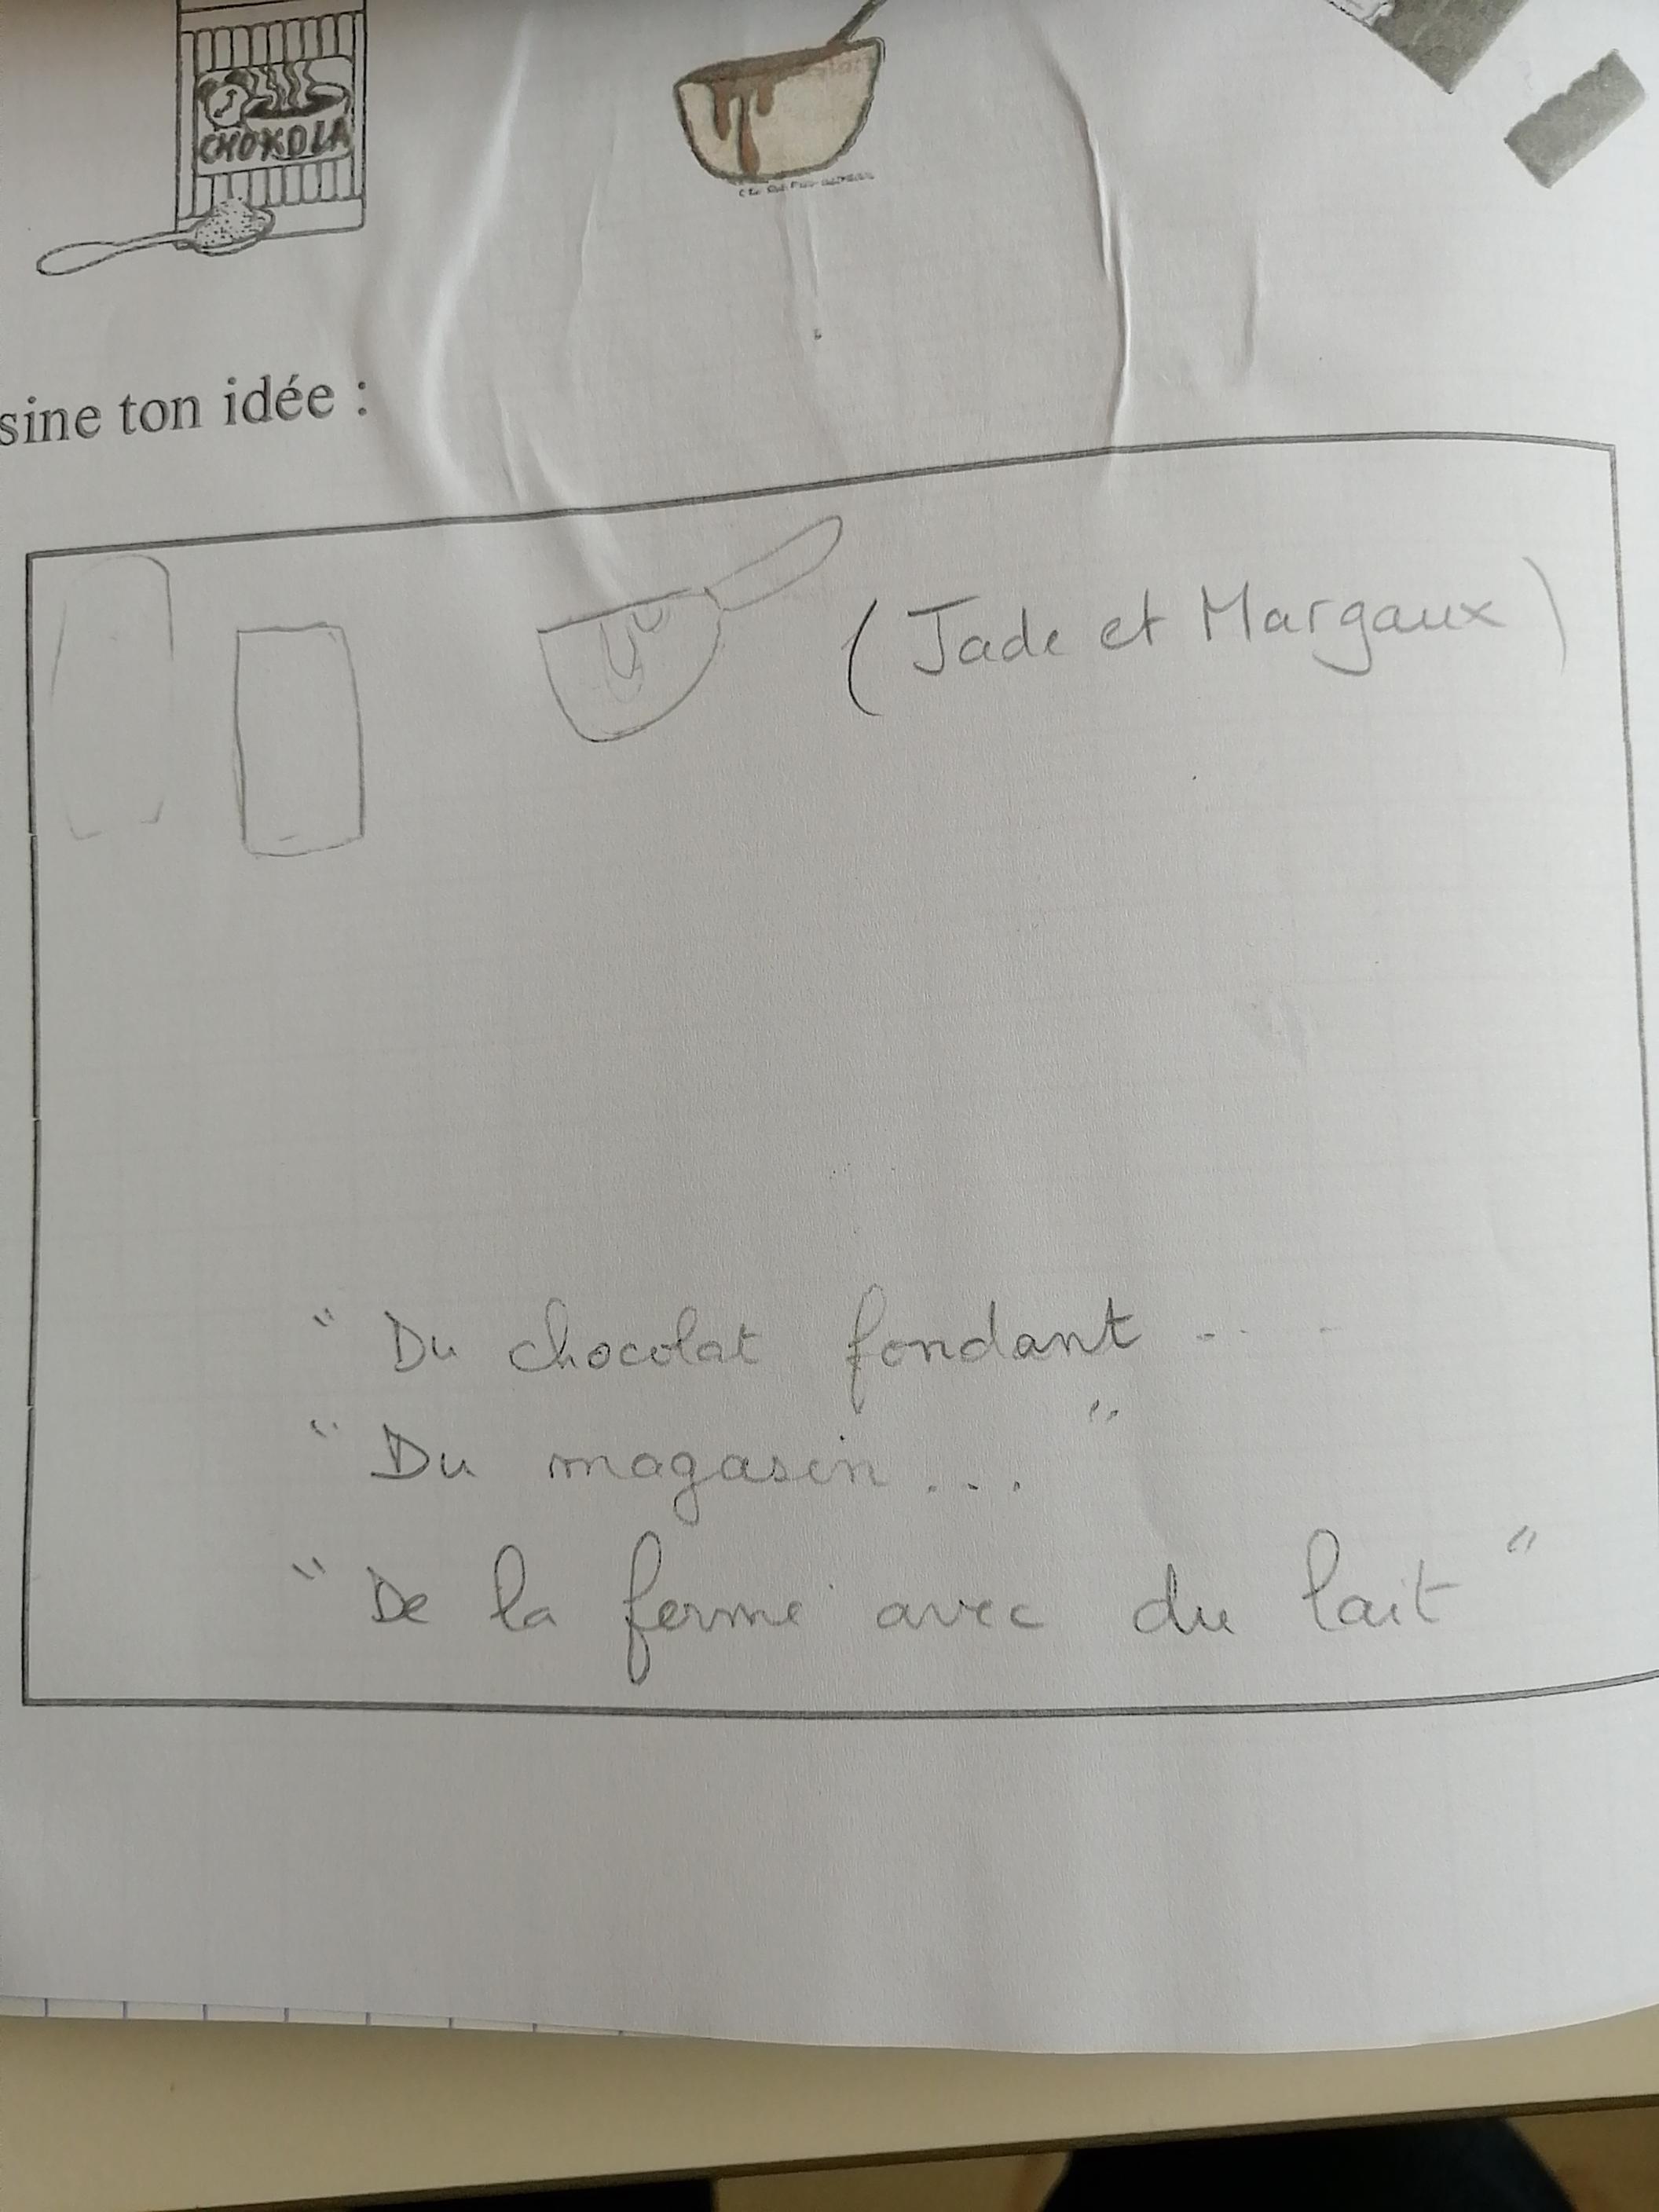 CHOKOLA
sine ton idée :
( Jade et Margaux )
" Du chocolat fondant ....
" Du magasin ... "
" De la ferme avec du lait "